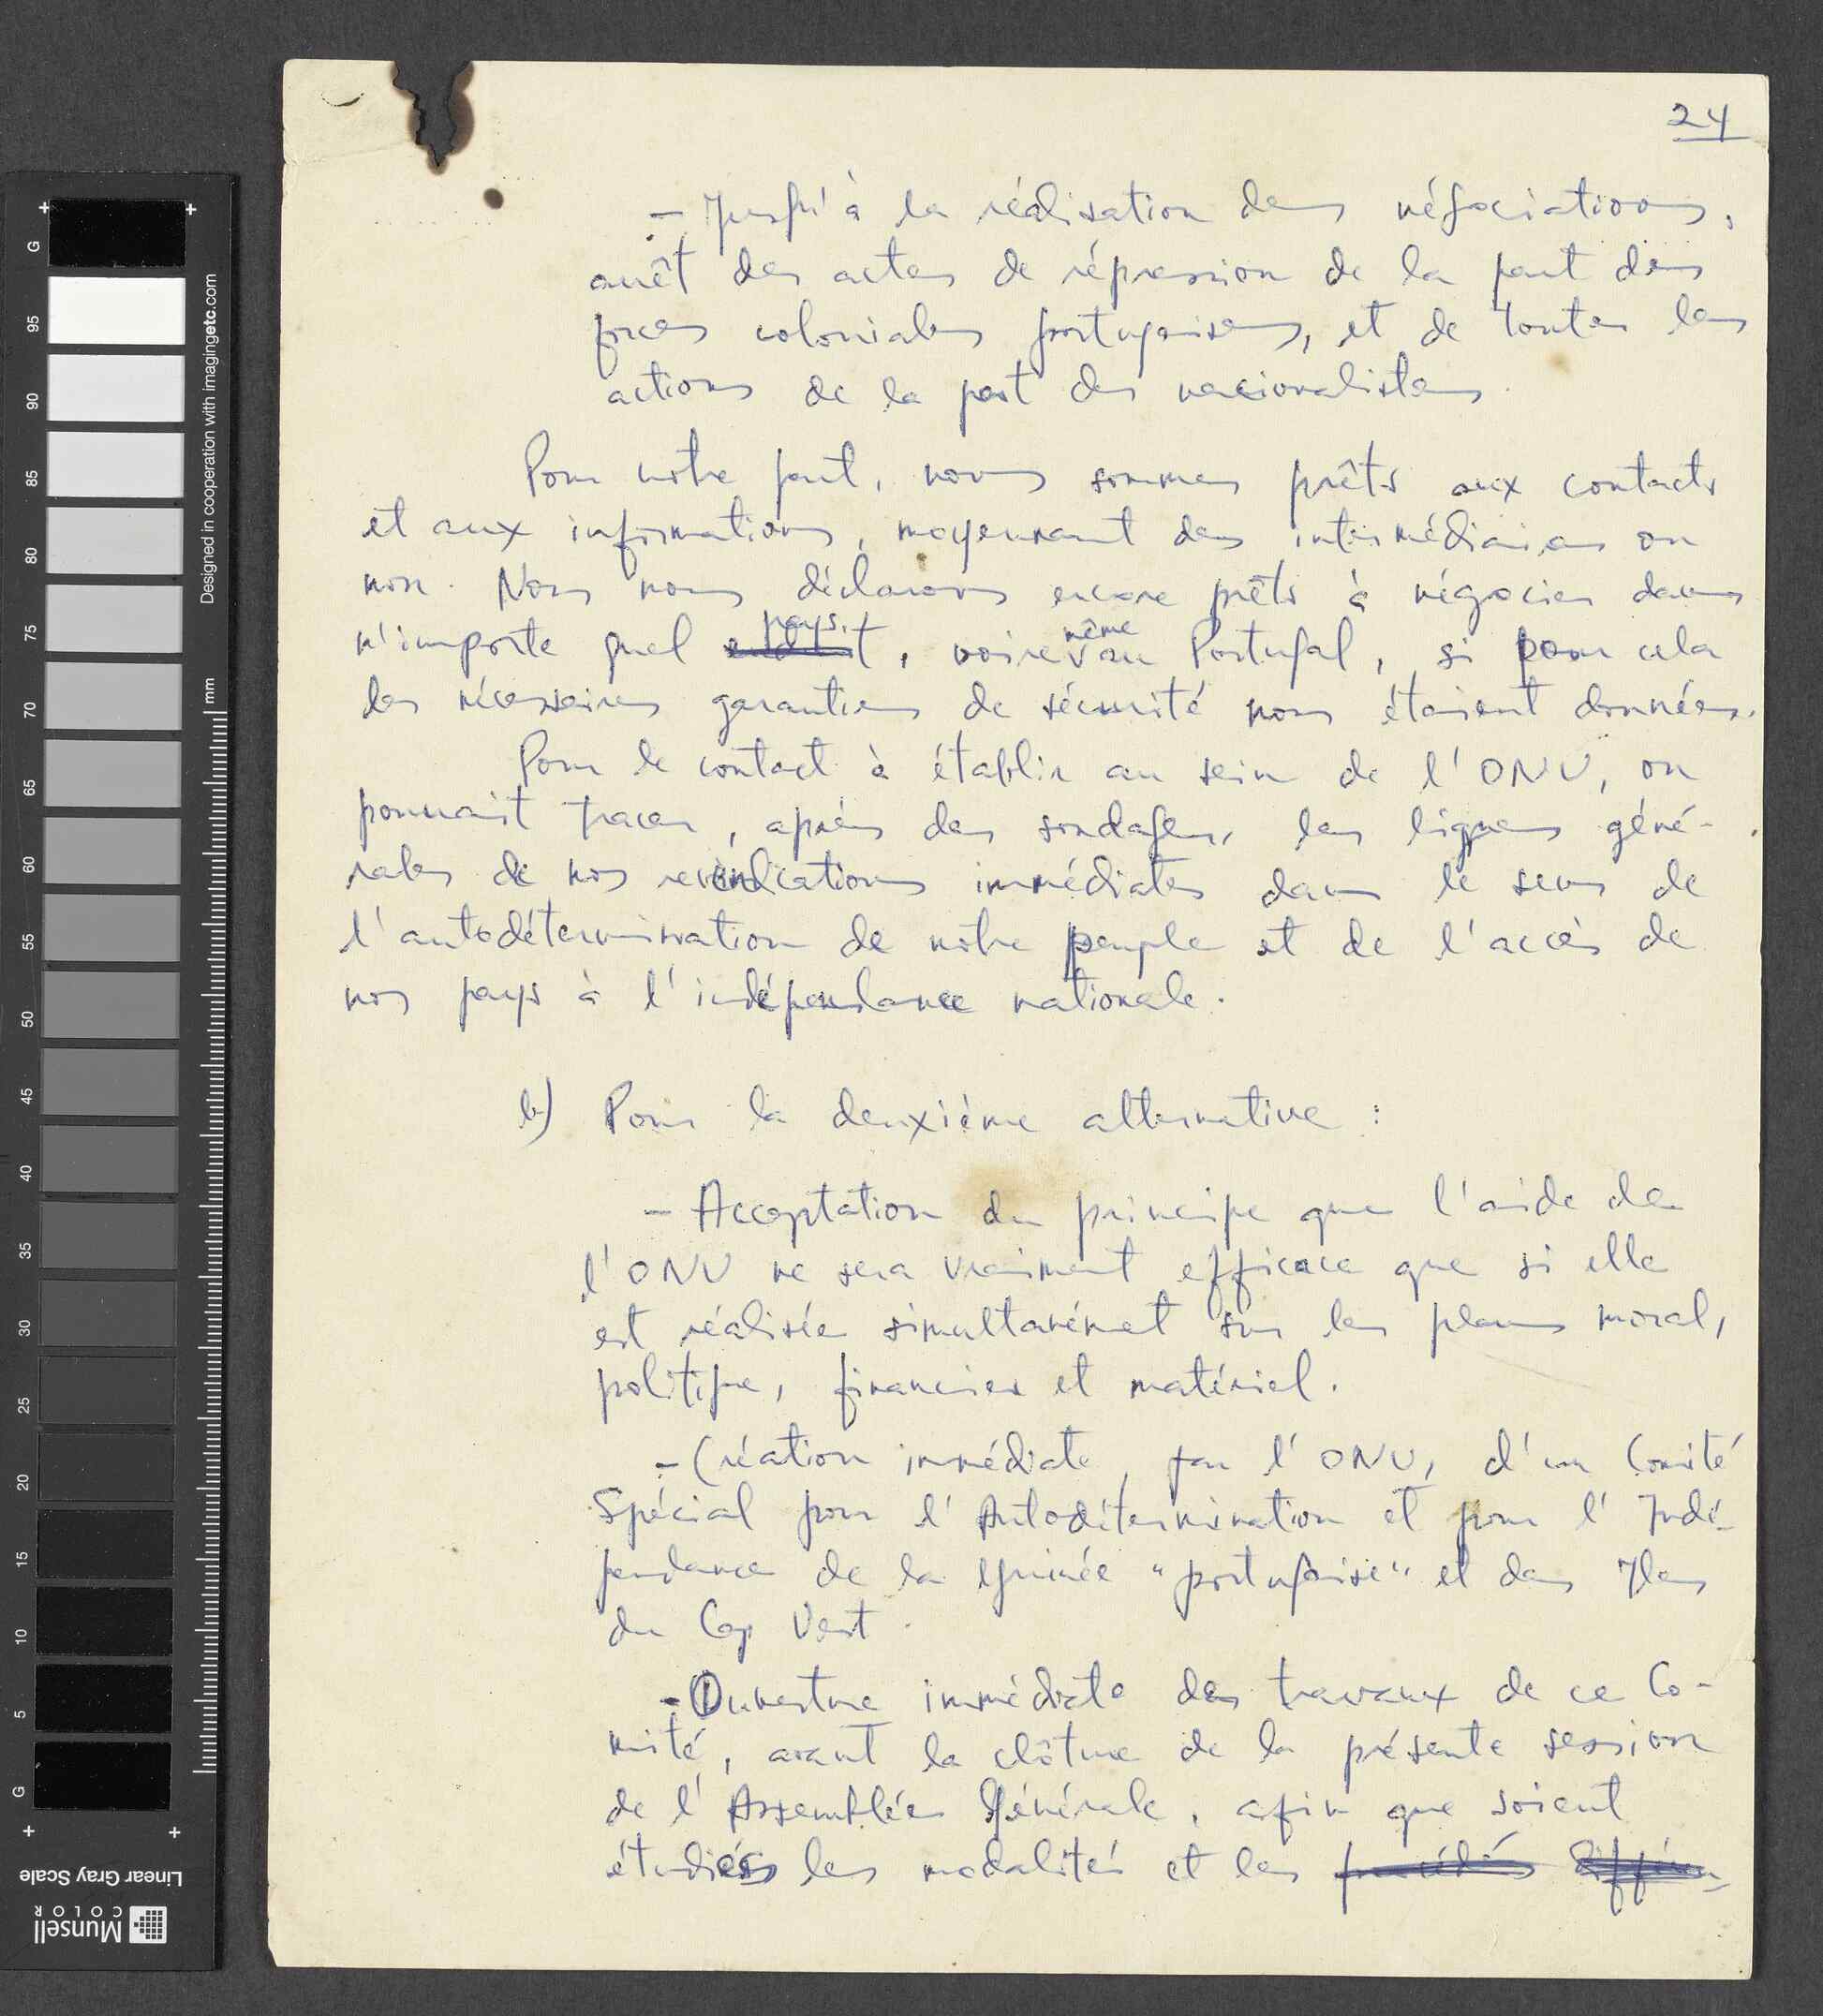 24
- Jusqu'à la réalisation des négociations,
arrêt des actes de répression de la part des
forces coloniales portugaises, et de toutes les
actions de la part des nacionalistes.
Pour notre part, nous sommes prêts aux contacts
et aux informations, moyennant des intermédiaires ou
non. Nous nous déclarons encore prêts à négocier dans
n'importe quel endroit pays, voire même au Portugal, si pour cela
les nécessaires garanties de sécurité nous étaient données.
Pour le contact à établir au sein de l'ONU, on
pourrait tracer, après des sondages, les lignes géné-
rales de nos revendications immédiates dans le sens de
l'autodétermination de notre peuple et de l'accès de
nos pays à l'indépendance nationale.
b) Pour la deuxième alternative :
- Acceptation du principe que l'aide de
l'ONU ne sera vraiment efficace que si elle
est réalisée simultanémet sur les plans moral,
politique, financier et matériel.
- Création immédiate, par l'ONU, d'un Comité
Spécial pour l'Autodétermination et pour l'Indé-
pendance de la Guinée "portugaise" et des Iles
du Cap Vert.
- Ouverture immédiate des travaux de ce Co-
mité, avant la clôture de la présente session
de l'Assemblée Générale, afin que soient
étudiées les modalités et les procédés
G
95
90
85
80
75
70
65
60
55
50
45
40
35
30
25
20
15
10
5
G
mm
Designed in cooperation with imagingetc.com
Linear Gray Scale
Munsell
COLOR